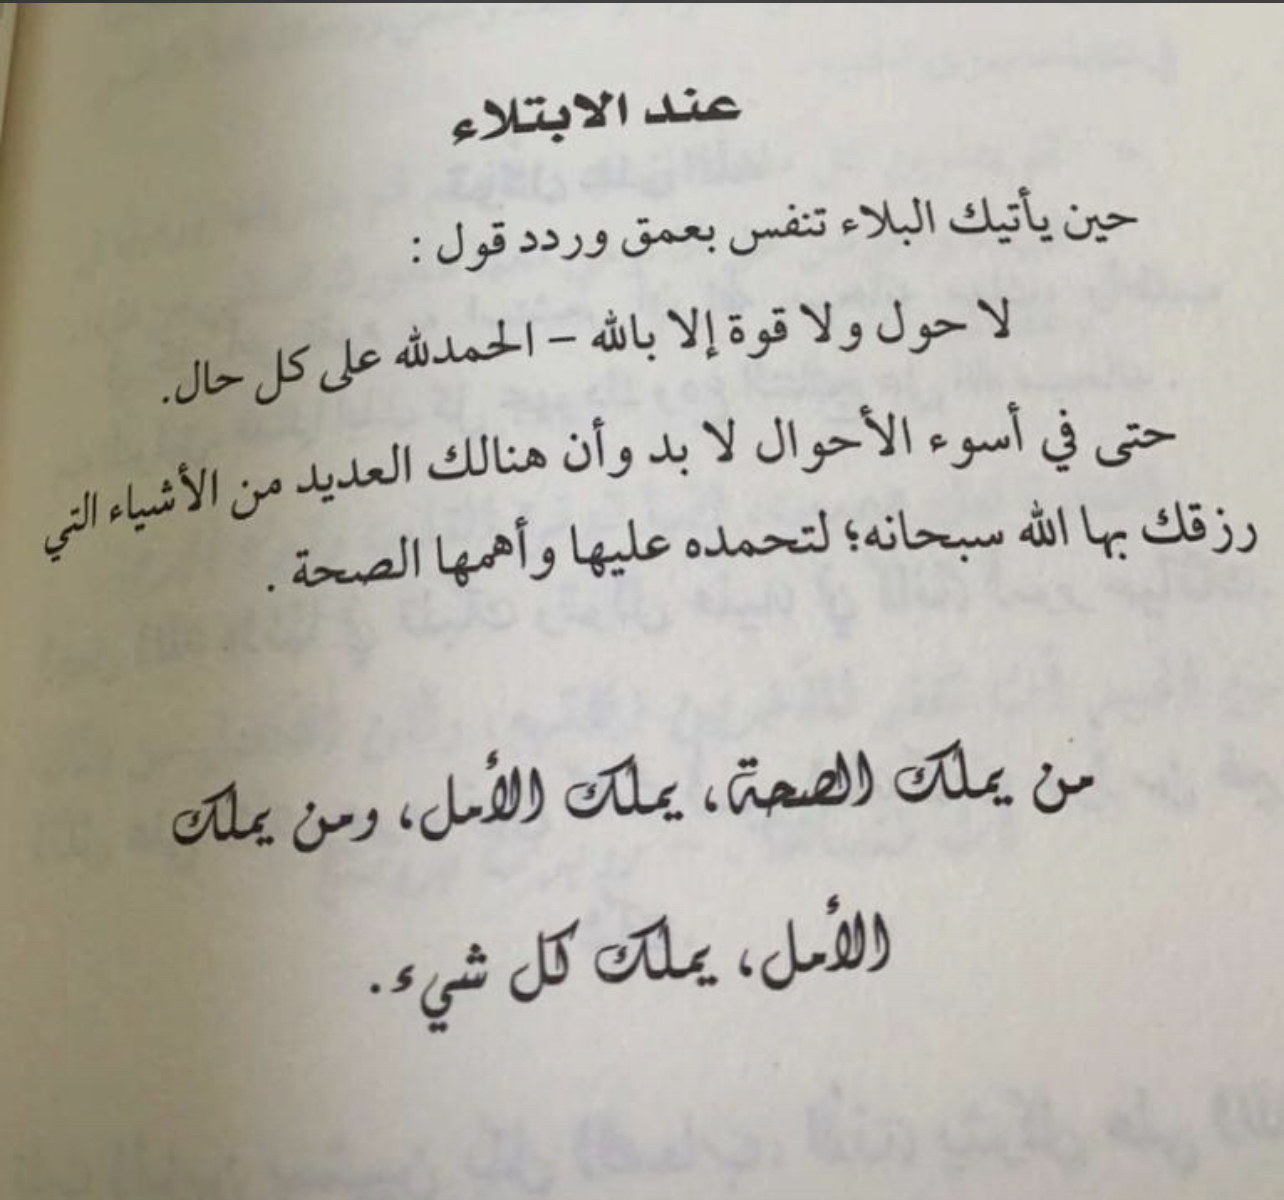 عند الابتلاء
حين يأتيك البلاء تنفس بعمق وردد قول :
لا حول ولا قوة إلا بالله – الحمدلله على كل حال.
حتى في أسوء الأحوال لا بد وأن هنالك العديد من الأشياء التي
رزقك بها الله سبحانه؛ لتحمده عليها وأهمها الصحة .
من يملك الصحة، يملك الأمل، ومن يملك
الأمل، يملك كل شيء.